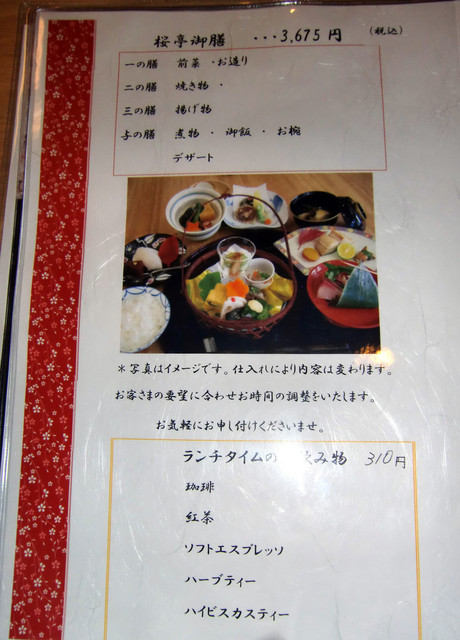 桜亭御膳 ・・・3,675円 (税込)
一の膳 前菜・お造り
二の膳 焼き物・
三の膳 揚げ物
与の膳 煮物・御飯・お椀
デザート
＊写真はイメージです。仕入れにより内容は変わります。
お客さまの要望に合わせお時間の調整をいたします。
お気軽にお申し付けくださいませ。
ランチタイムの み物 310円
珈琲
紅茶
ソフトエスプレッソ
ハーブティー
ハイビスカスティー